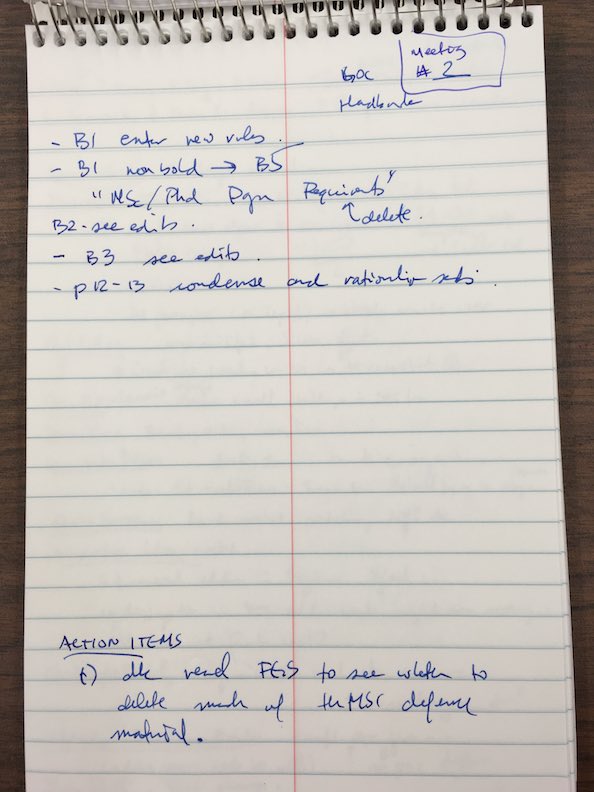 Meeting
# 2
GOC
Handbook
- B1 enter new rules.
- B1 nonbold → B5
"MSc/Phd Pgm Requirements"
↑ delete.
B2 - see edits.
- B3 see edits.
- p 12-13 condense and
ACTION ITEMS
1) dk read FGS to see whether to
delete much of the MSc defence
material.